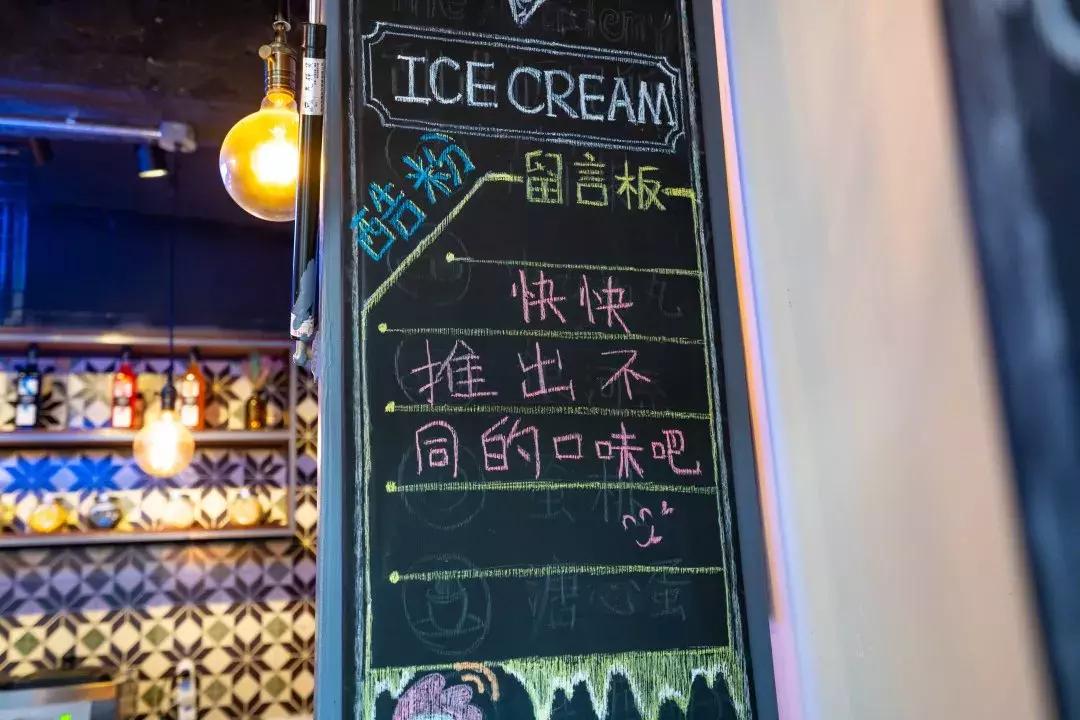 ICE CREAM
酷粉
留言板
快快
推出不
同的口味吧
溏心蛋